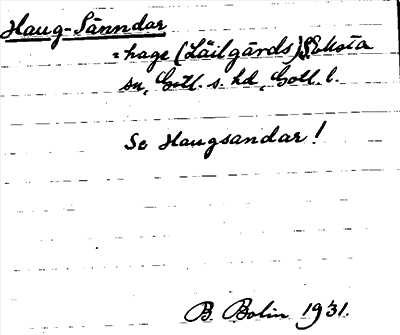 Haug-Sänndar
= hage (Läilgårds) Eksta
sn, Gotl. s. hd, Gotl. l.
Se Haugsandar!
B. Bolin 1931.